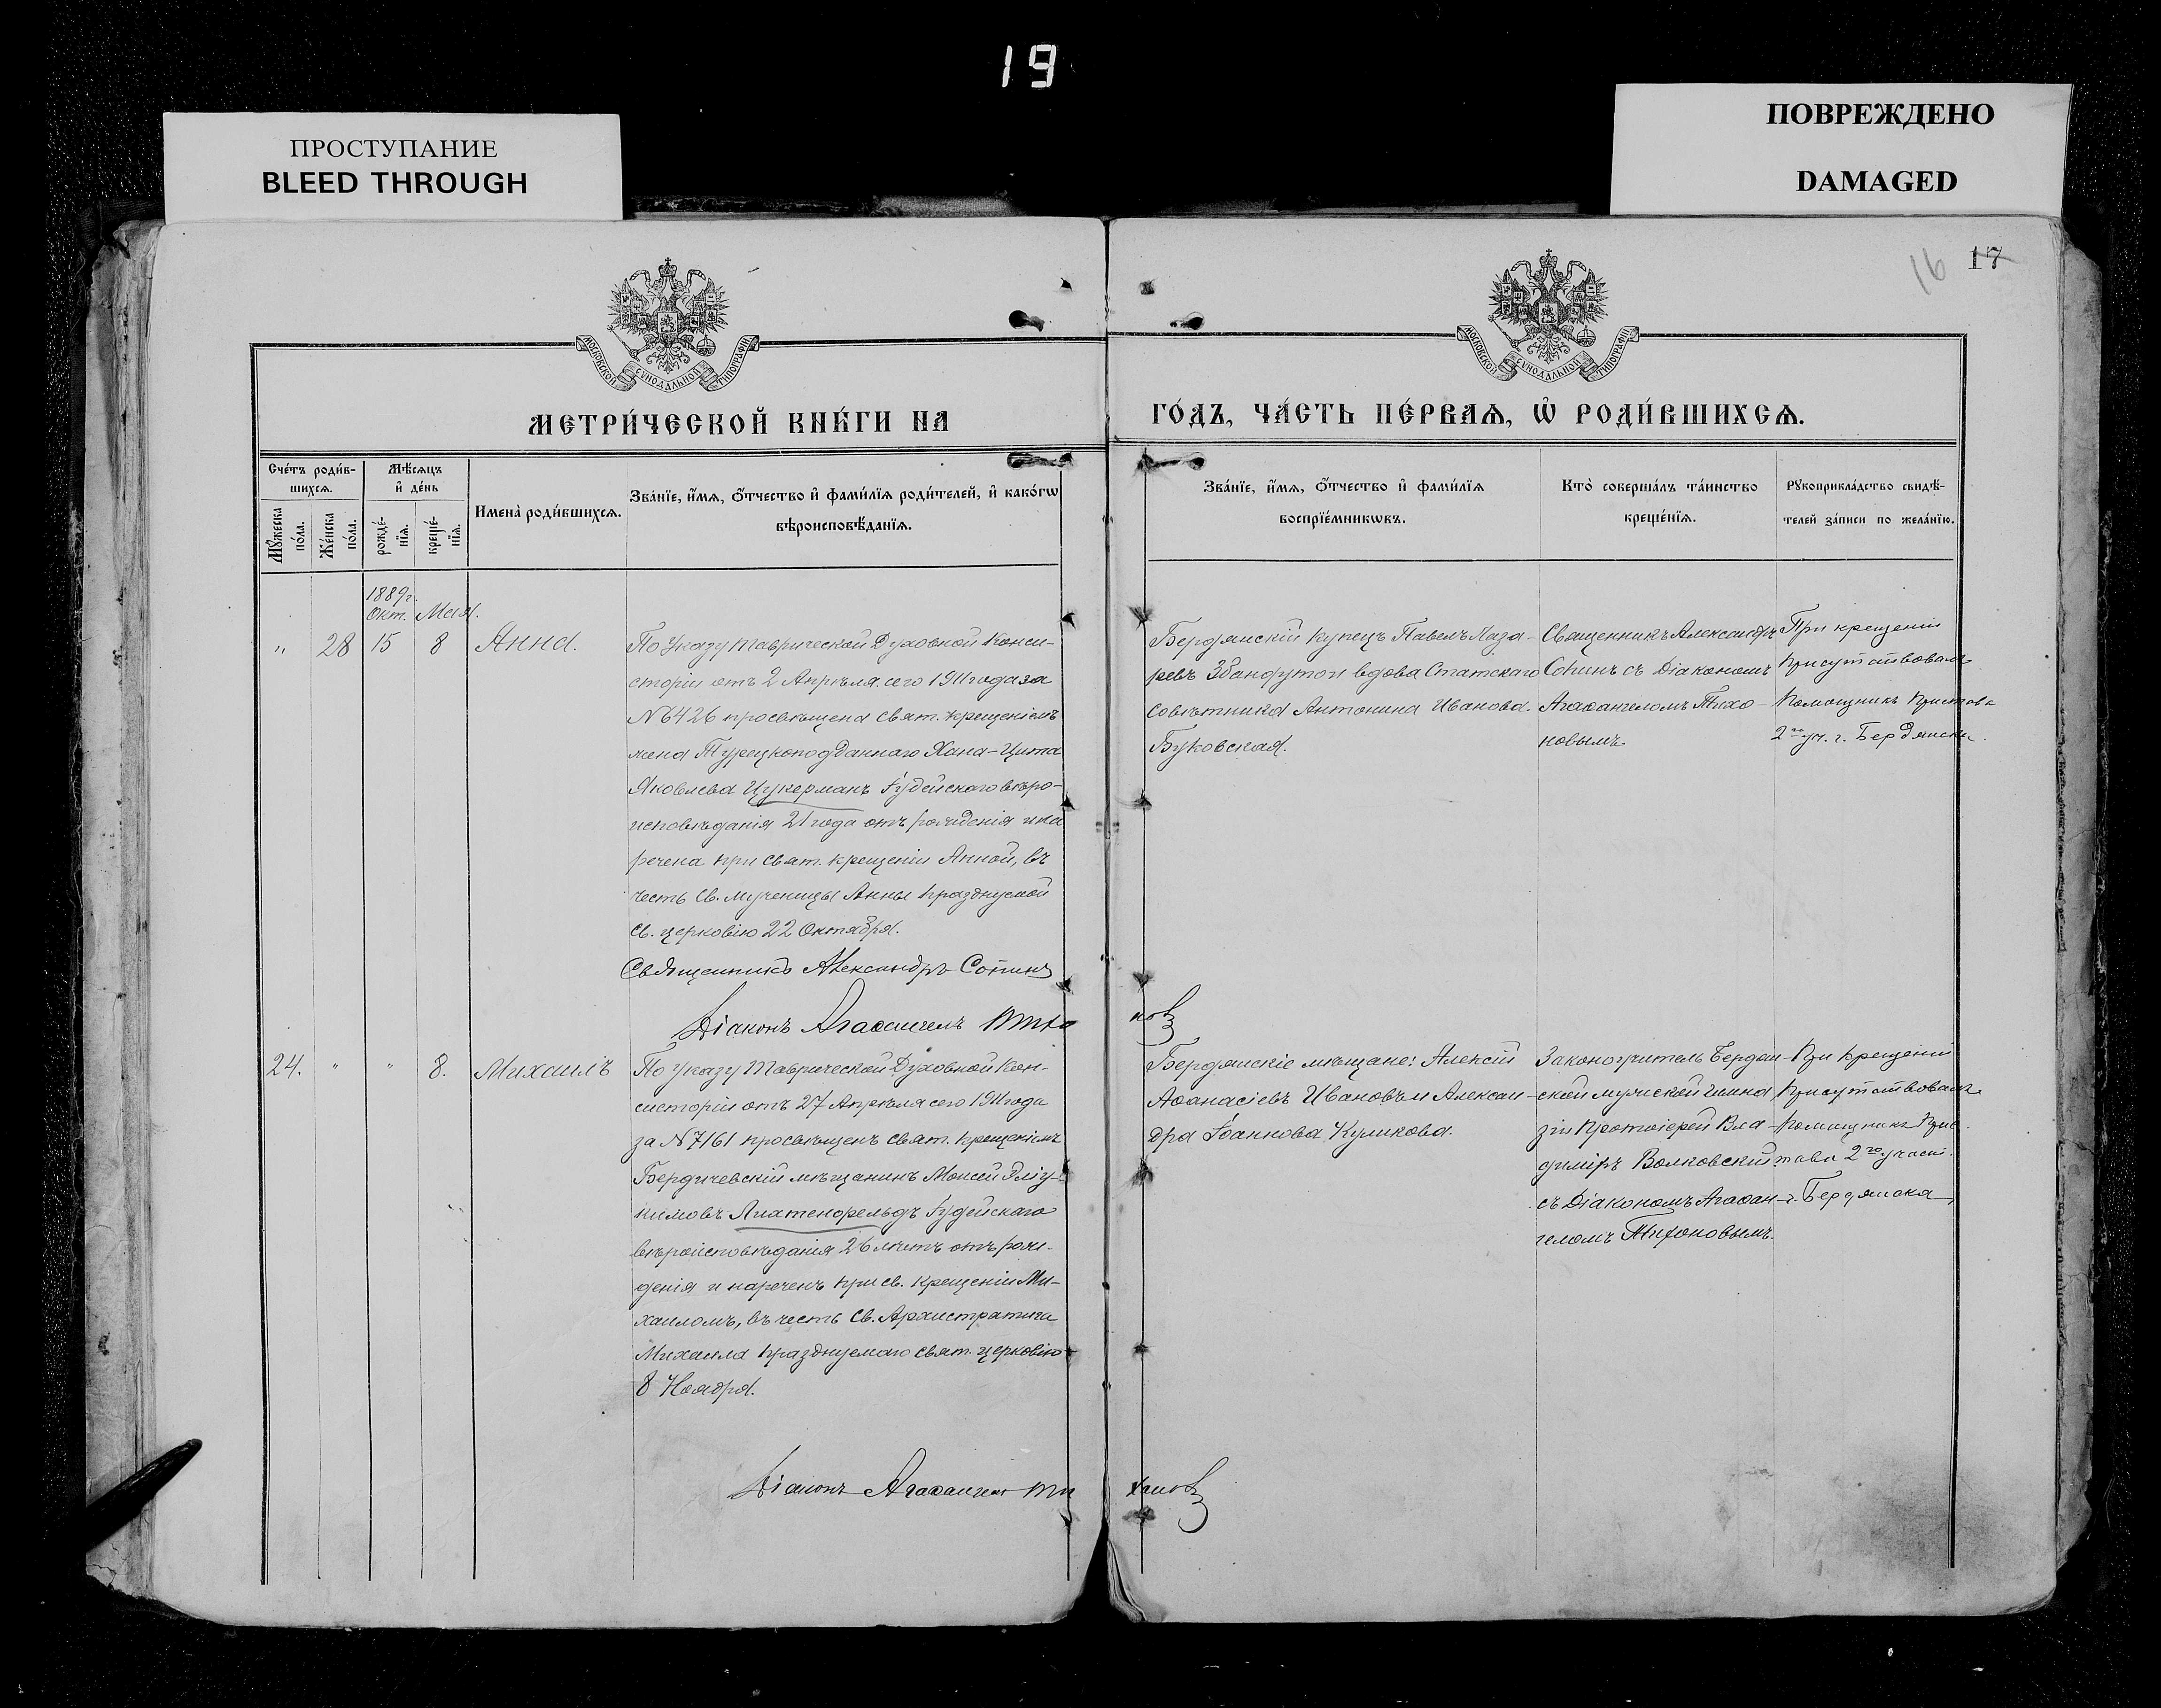 19
ПРОСТУПАНИЕ
BLEED THROUGH
ПОВРЕЖДЕНО
DAMAGED
16 17
МОСКОВСКОЙ СѴНОДАЛЬНОЙ ТИПОГРАФІИ
МОСКОВСКОЙ СѴНОДАЛЬНОЙ ТИПОГРАФІИ
МЕТРИ́ЧЕСКОЙ КНИ́ГИ НА
ГО́ДЪ, ЧА́СТЬ ПЕ́РВАѦ, Ѡ҆ РОДИ́ВШИХСѦ.
Сче́тъ роди́в-
шихсѧ.
Мꙋ́жеска
по́ла.
Же́нска
по́ла.
Мѣ́сѧцъ
и҆ де́нь
рожде́-
нїѧ.
креще́-
нїѧ.
Имена̀ роди́вшихсѧ.
Зва́нїе, и҆́мѧ, ѻ҆́тчество и҆ фами́лїѧ роди́телей, и҆ како́гѡ
вѣроисповѣ́данїѧ.
Зва́нїе, и҆́мѧ, ѻ҆́тчество и҆ фами́лїѧ
воспрїе́мникѡвъ.
Кто̀ соверша́лъ та́инство
креще́нїѧ.
Рꙋкоприкла́дство свидѣ́-
телей за́писи по жела́нїю.
1889 г.
Окт. Мая.
" 28 15 8 Анна.
По Указу Таврической Духовной Конси-
сторіи отъ 2 Апрѣля сего 1911 года за
№ 6426 просвѣщена свят. крещеніемъ
жена Турецкоподданнаго Хана-Цита
Яковлева Цукерманъ Іудейскаго вѣро-
исповѣданія 21 года отъ рожденія и на
речена при свят. крещеніи Анной, въ
честь Св. мученицы Анны празднуемой
св. церковію 22 Октября.
Священникъ Александръ Сопинъ
Діаконъ Агаѳангелъ Тихо
новъ
Бердянскій купецъ Павелъ Лаза-
ревъ и вдова Статскаго
Совѣтника Антонина Иванова
Буковская.
Священникъ Александръ
Сопинъ съ Діакономъ
Агаѳангеломъ Тихо-
новымъ.
При крещеніи
присутствовалъ
Помощникъ Пристава
2го уч. г. Бердянска.
24. " " 8. Михаилъ
По Указу Таврической Духовной Кон-
систоріи отъ 27 Апрѣля сего 1911 года
за № 7161 просвѣщенъ свят. крещеніемъ
Бердичевскій мѣщанинъ Моисей Эліу-
кимовъ Іудейскаго
вѣроисповѣданія 26 лѣтъ отъ рож-
денія и нареченъ при св. крещеніи Ми-
хаиломъ, въ честь Св. Архистратига
Михаила празднуемаго свят. церковію
8 Ноября.
Діаконъ Агаѳангелъ Ти
хановъ
Бердянскіе мѣщане: Алексій
Аѳанасіевъ Ивановъ и Алексан-
дра Іоаннова Куликова.
Законоучитель Бердян-
ской мужской гимна
зіи Протоіерей Вла-
диміръ Волковскій
съ Діакономъ Агаѳан-
геломъ Тихоновымъ.
При крещеніи
присутствовалъ
Помощникъ Прис
тава 2го участ.
г. Бердянска